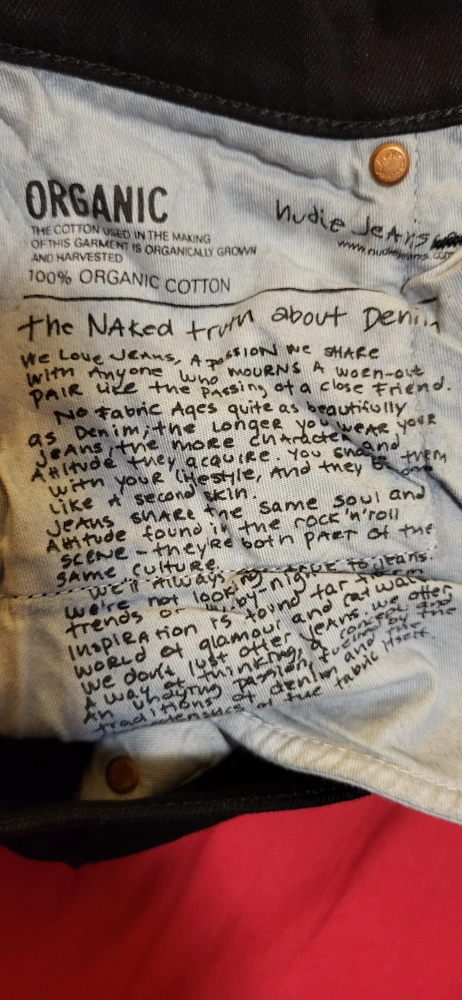 ORGANIC
THE COTTON USED IN THE MAKING
OF THIS GARMENT IS ORGANICALLY GROWN
AND HARVESTED
100% ORGANIC COTTON
nudie Jeans
www.nudiejeans.com
the NAKed truth about Denim
We Love Jeans, A passion we share
with Anyone who mourns A worn-out
PAIR Like the passing of a close Friend.
No Fabric Ages quite as beautifully
as Denim; the Longer you wear your
Jeans, the more character and
Attitude they acquire. You shape them
with your lifestyle, And they become
like A second skin.
Jeans share the same soul and
Attitude found in the rock'n'roll
scene - they're both part of the
same culture.
We'll always be true to jeans.
we're not looking
trends or fly-by-night
Inspiration is found far
world of glamour and catwalk
we don't just offer jeans. we offer
A way of thinking, a concept and
An undying passion, fueled by the
traditions of denim and the
of the fabric itself.